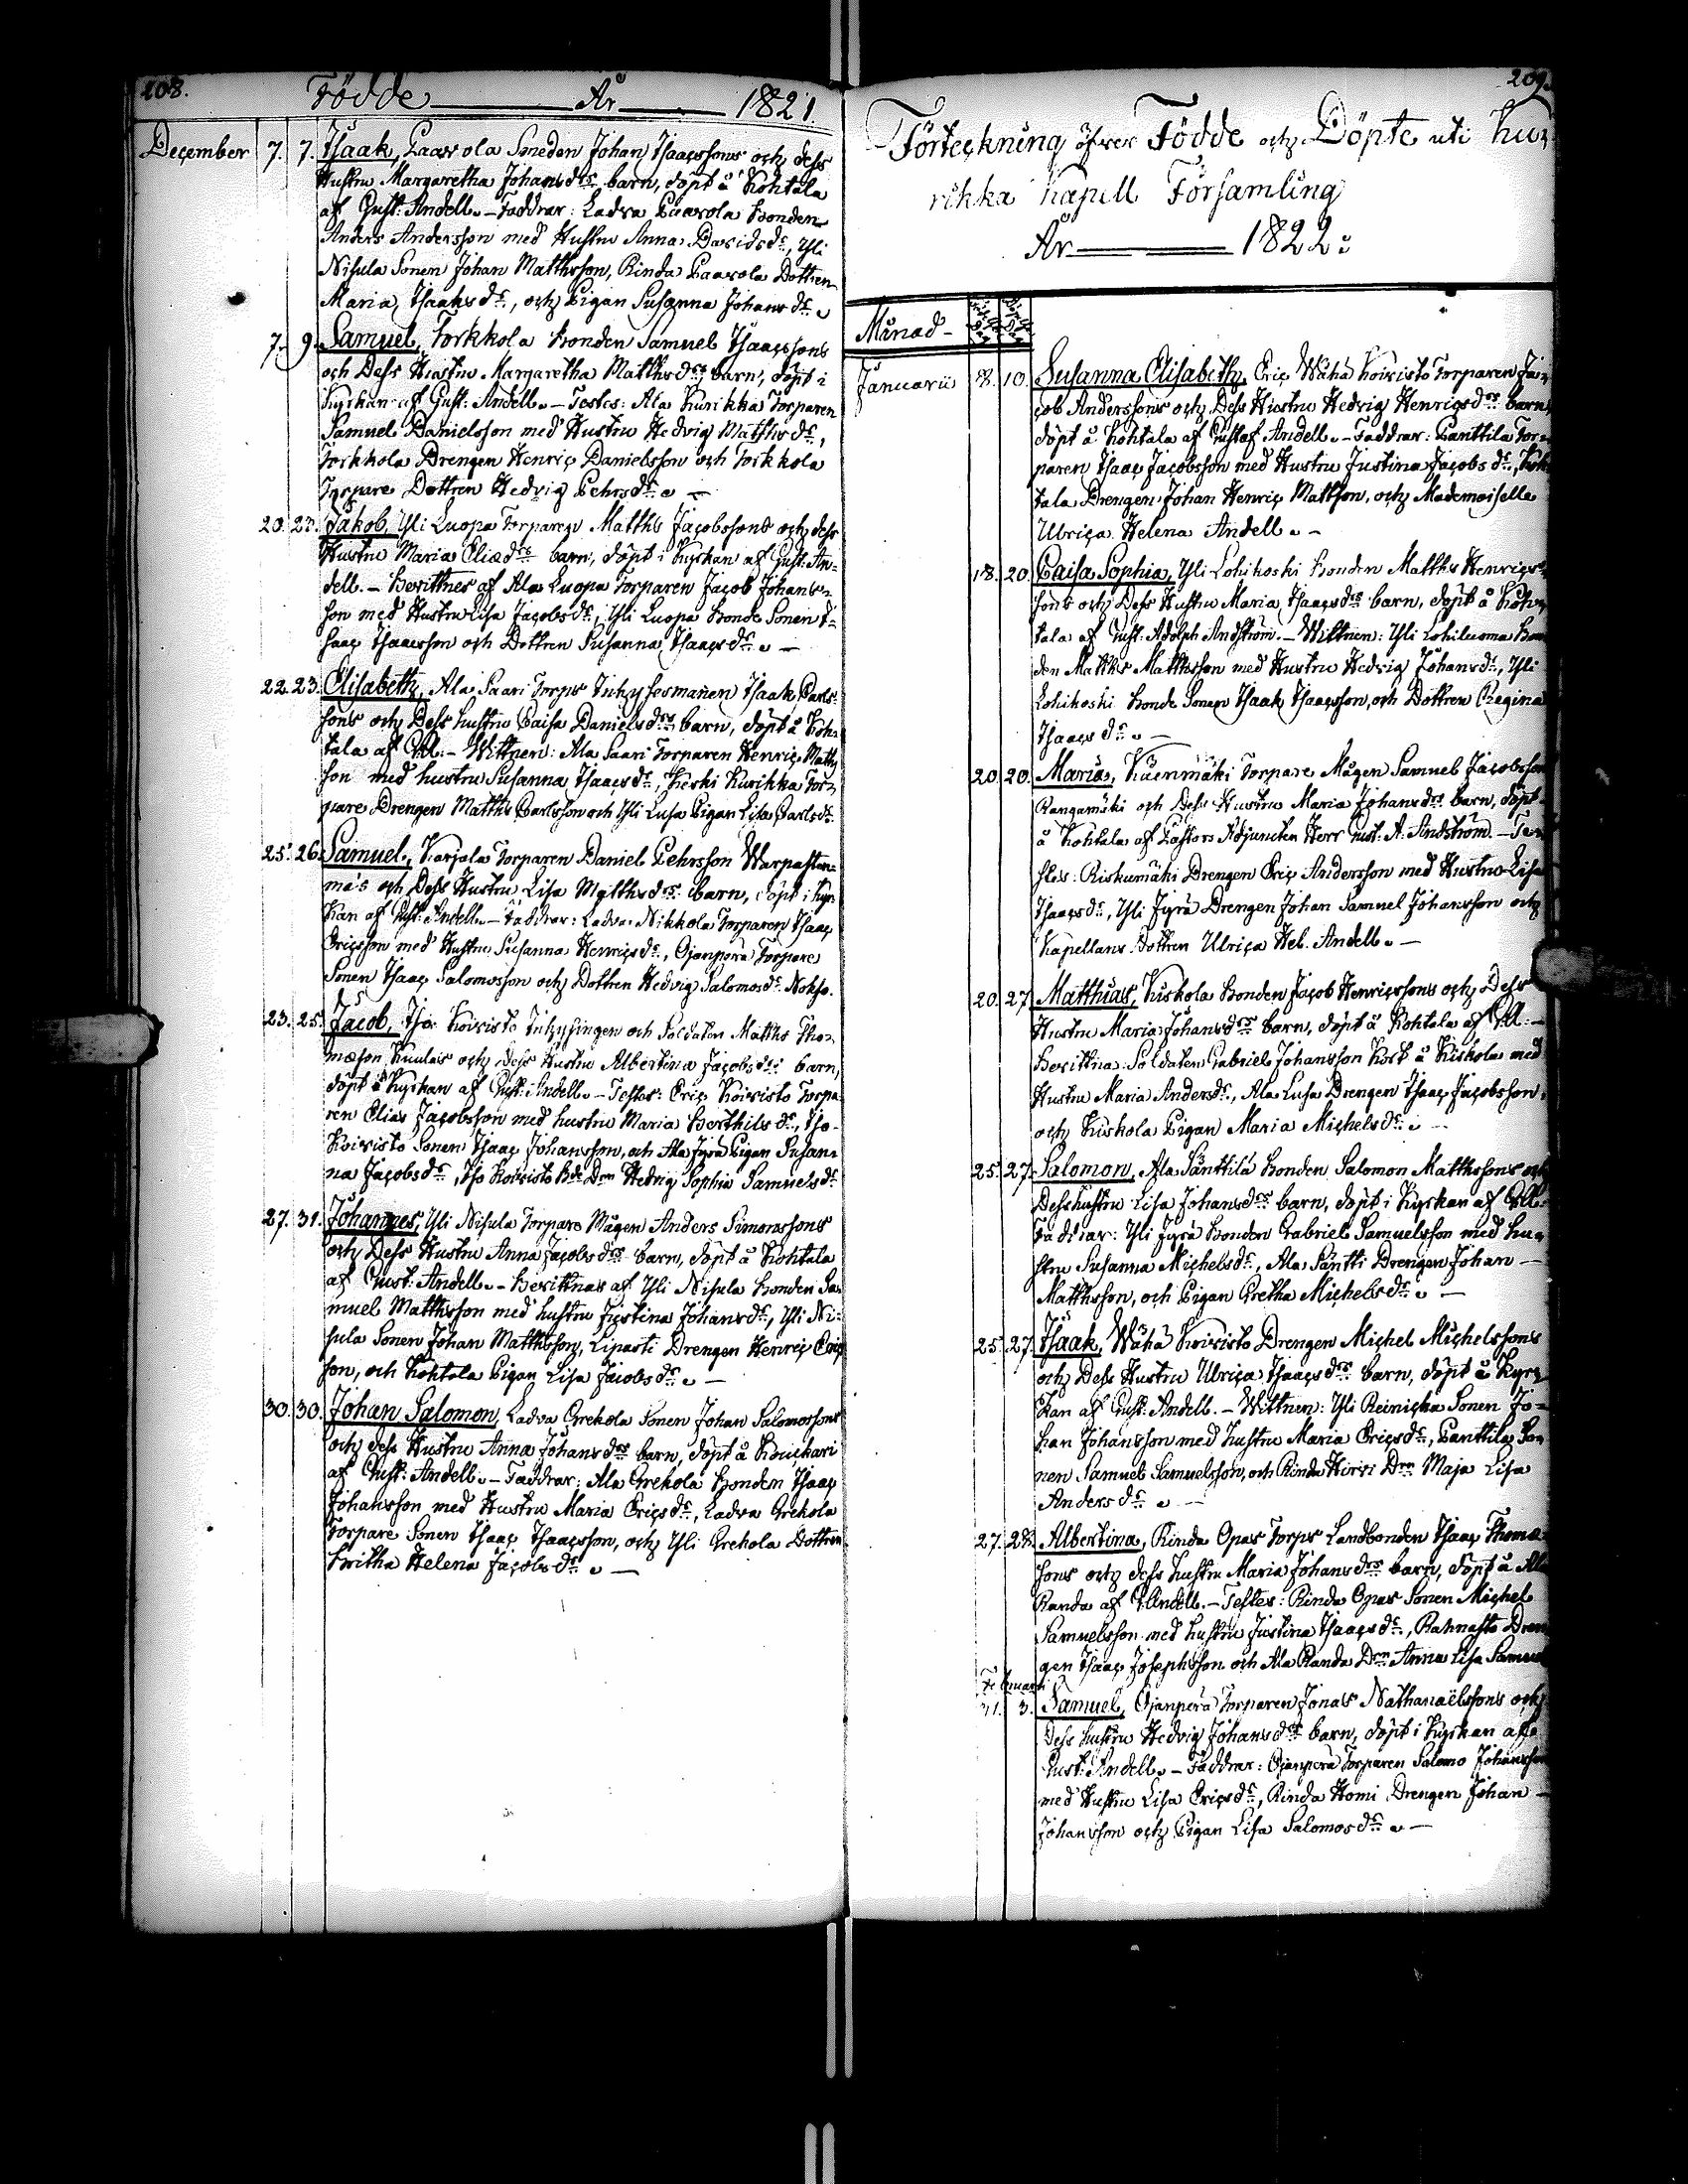 208.
Födde År 1821.
December 7. 7. Isaak, Paavola Smeden Johan Isaacssons och dess
Hustru Margaretha Johansdrs barn, döpt å Kohtala
af Gust: Andell. – Faddrar: Ladva Paavola Bonden
Anders Andersson med Hustru Anna Davidsdr, Yli
Nisula Sonen Johan Matthsson, Rinda Paavola Dottren
Maria Isaaksdr, och Pigan Susanna Johansdr.
7. 9. Samuel, Torkkola Bonden Samuel Isaacssons
och Dess Hustru Margaretha Matthsdrs barn, döpt i
Kyrkan af Gust: Andell. – Testes: Ala Kurikka Torparen
Samuel Danielsson med Hustru Hedvig Matthsdr,
Torkkola Drengen Henric Danielsson och Torkkola
Torpare Dottren Hedvig Pehrsdr. –
20. 23. Jakob, Yli Luopa Torparen Matths Jacobssons och dess
Hustru Maria Eliædrs barn, döpt i Kyrkan af Gust: An=
dell. – Bevittnes af Ala Luopa Torparen Jacob Johans=
son med Hustru Lisa Jacobsdr, Yli Luopa Bonde Sonen I=
saac Isaacsson och Dottren Susanna Isaacsdr. –
22. 23. Elisabeth, Ala Saari Torps Inhysesmannen Isaak Carls=
sons och Dess hustru Caisa Danielsdrs barn, döpt å Koh=
tala af GA. – Wittnen: Ala Saari Torparen Henric Matths
son med hustru Susanna Isaacsdr, Keski Kurikka Tor=
pare Drengen Matths Carlsson och Yli Lusa Pigan Lisa Carlsdr.
25. 26. Samuel, Karjala Torparen Daniel Pehrsson Warpasten=
mä's och Dess Hustru Lisa Matthsdrs barn, döpt i Kyr
kan af Gust: Andell. – Faddrar: Ladva Nikkola Torparen Isaac
Ericsson med Hustru Susanna Henricsdr, Ojanperä Torpare
Sonen Isaac Salomosson och Dottren Hedvig Salomosdr
23. 25. Jacob, Iso Koivisto Inhysingen och Soldaten Matths Tho=
mæson och dess Hustru Albertina Jacobsdrs barn,
döpt å Kyrkan af Gust: Andell. – Testes: Eric Koivisto Torpa
ren Elias Jacobsson med hustru Maria Berthilsdr, Iso
Koivisto Sonen Isaac Johansson, och Ala Jyrä Pigan Susan=
na Jacobsdr, Iso Koivisto Bde Drn Hedvig Sophia Samuelsdr
27. 31. Johannes, Yli Nisula Torpare Mågen Anders Simonssons
och Dess Hustru Anna Jacobsdrs barn, döpt å Kohtala
af Gust: Andell. – Bevittnas af Yli Nisula Bonden Sa
muel Matthsson med hustru Justina Johansdr, Yli Ni=
sula Sonen Johan Matthsson, Liparti Drengen Henric Eric
son, och Kohtala Pigan Lisa Jacobsdr. –
30. 30. Johan Salomon, Ladva Grekola Sonen Johan Salomossons
och dess Hustru Anna Johansdrs barn, döpt å Kouckari
af Gust: Andell. – Faddrar: Ala Grekola Bonden Isaac
Johansson med Hustru Maria Ericsdr, Ladva Grekola
Torpare Sonen Isaac Isaacsson, och Yli Grekola Dottren
Britha Helena Jacobsdr. –
209.
Förteckning öfver Födde och Döpte uti Ku=
rikka Kapell Församling
År 1822.
Månad
Januarii 8. 10. Susanna Elisabeth, Eric Wähä Koivisto Torparen Ja=
cob Anderssons och Dess Hustru Hedvig Henricsdrs barn,
döpt å Kohtala af Gustaf Andell. – Faddrar: Panttila Tor=
paren Isaac Jacobsson med Hustru Justina Jacobsdr, Koh
tala Drengen Johan Henric Mattson, och Mademoiselle
Ulrica Helena Andell. –
18. 20. Caisa Sophia, Yli Lohikoski Bonden Matths Henrics=
sons och Dess Hustru Maria Isaacsdrs barn, döpt å Koh=
tala af Gust: Adolph Andström. – Wittnen: Yli Lohiluoma Bon
den Matths Matthsson med Hustru Hedvig Johansdr, Yli
Lohikoski Bonde Sonen Isaak Isaacsson, och Dottren Regina
Isaacsdr. –
20. 20. Maria, Kuenmäki Torpare Mågen Samuel Jacobsson
Rangamäki och Dess Hustru Maria Johansdrs barn, döpt
å Kohtala af Pastors Adjuncten Herr Gust: A: Andström. – Te=
stes: Riskumäki Drengen Eric Andersson med Hustru Lisa
Isaacsdr, Yli Jyrä Drengen Johan Samuel Johansson och
Kapellans Dottren Ulrica Hel. Andell. –
20. 27. Matthias, Kiskola Bonden Jacob Henricssons och Dess
Hustru Maria Johansdrs barn, döpt å Kohtala af GA. –
Bevittna: Soldaten Gabriel Johansson Kort å Kiskola med
Hustru Maria Andersdr, Ala Lusa Drengen Isaac Jacobsson,
och Kiskola Pigan Maria Michelsdr. –
25. 27. Salomon, Ala Panttila Bonden Salomon Matthssons och
Dess hustru Lisa Johansdrs barn, döpt i Kyrkan af GA.
Faddrar: Yli Jyrä Bonden Gabriel Samuelsson med hu=
stru Susanna Michelsdr, Ala Säntti Drengen Johan –
Matthsson, och Pigan Gretha Michelsdr. –
25. 27. Isaak, Wähä Koivisto Drengen Michel Michelssons
och Dess Hustru Ulrica Isaacsdrs barn, döpt å Kyr=
kan af Gust: Andell. – Wittnen: Yli Reinicka Sonen Jo=
han Johansson med hustru Maria Ericsdr, Panttila So=
nen Samuel Samuelsson, och Rinda Hirvi Drn Maja Lisa
Andersdr. –
27. 28. Albertina, Rinda Opas Torps Landbonden Isaac Thomæ
sons och dess hustru Maria Johansdrs barn, döpt å Ala
Randa af G: Andell. – Testes: Rinda Opas Sonen Michel
Samuelsson med hustru Justina Isaacsdr, Rahnasto Dren
gen Isaac Josephsson och Ala Randa Drn Anna Lisa Samuel
Februarii
31. 3. Samuel, Ojanperä Torparen Jonas Nathanaëlssons och
Dess hustru Hedvig Johansdrs barn, döpt i Kyrkan af
Gust: Andell. – Faddrar: Ojanperä Torparen Salomo Johansson
med Hustru Lisa Ericsdr, Rinda Homi Drengen Johan –
Johansson och Pigan Lisa Salomosdr. –